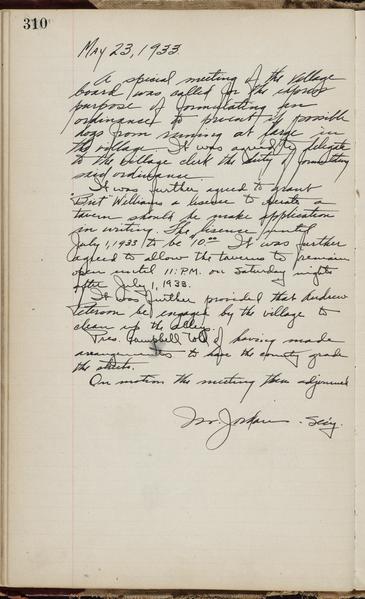 310
May 23, 1933.
A special meeting of the Village
board was called for the express
purpose of formulating an
ordinance, to prevent if possible
dogs from running at large in
the village. It was agreed to delegate
to the village clerk the duty of
said ordinance.
It was further agreed to grant
"Bert" Williams a license to operate a
tavern should he make application
in writing. The license until
July 1, 1933 to be $10.00 It was further
agreed to allow the taverns to remain
open until 11:P.M. on Saturday nights
after July 1, 1933.
It was further provided that Andrew
Peterson be engaged by the village to
clean up the alleys.
Pres. Campbell told of having made
arrangements to have the county grade
the streets.
On motion the meeting then adjourned
Secy.